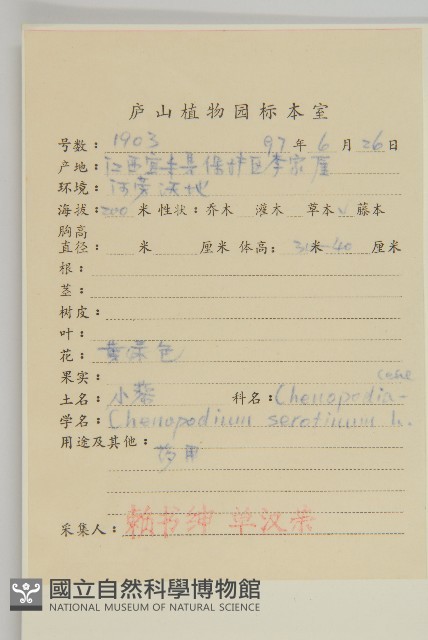 庐山植物园标本室
号数：1903 97年6月26日
产地：江西宜丰县保护区李家屋
环境：河旁洪地
海拔：200米 性状：乔木 灌木 草本√ 藤本
胸高
直径： 米 厘米 体高：30米-40厘米
根：
茎：
树皮：
叶：
花：黄绿色
果实：
土名：小藜 科名：Chenopodia-ceae
学名：Chenopodium serotinum L.
用途及其他：药用
采集人：赖书绅 单汉荣
國立自然科學博物館
NATIONAL MUSEUM OF NATURAL SCIENCE